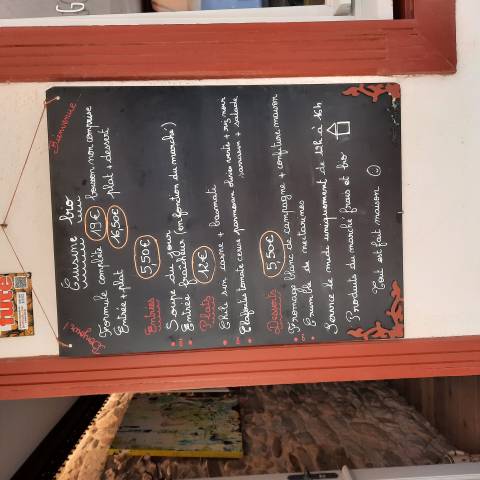 Bonjour !
Bienvenue
Cuisine bio
Formule complète 19€ boisson non comprise
Entrée + plat 15,50€ plat + dessert
Entrées 5,50€
Soupe du jour
ou Entrée fraîcheur (en fonction du marché)
Plats 12€
Chili sin carne + basmati
ou Clafoutis tomate cerise parmesan olives verte + riz noir
+ salade
Desserts 5,50€
Fromage blanc de campagne + confiture maison
ou Crumble de nectarines
Service le midi uniquement de 12h à 16h
Produits du marché frais et bio
Tout est fait maison
futé